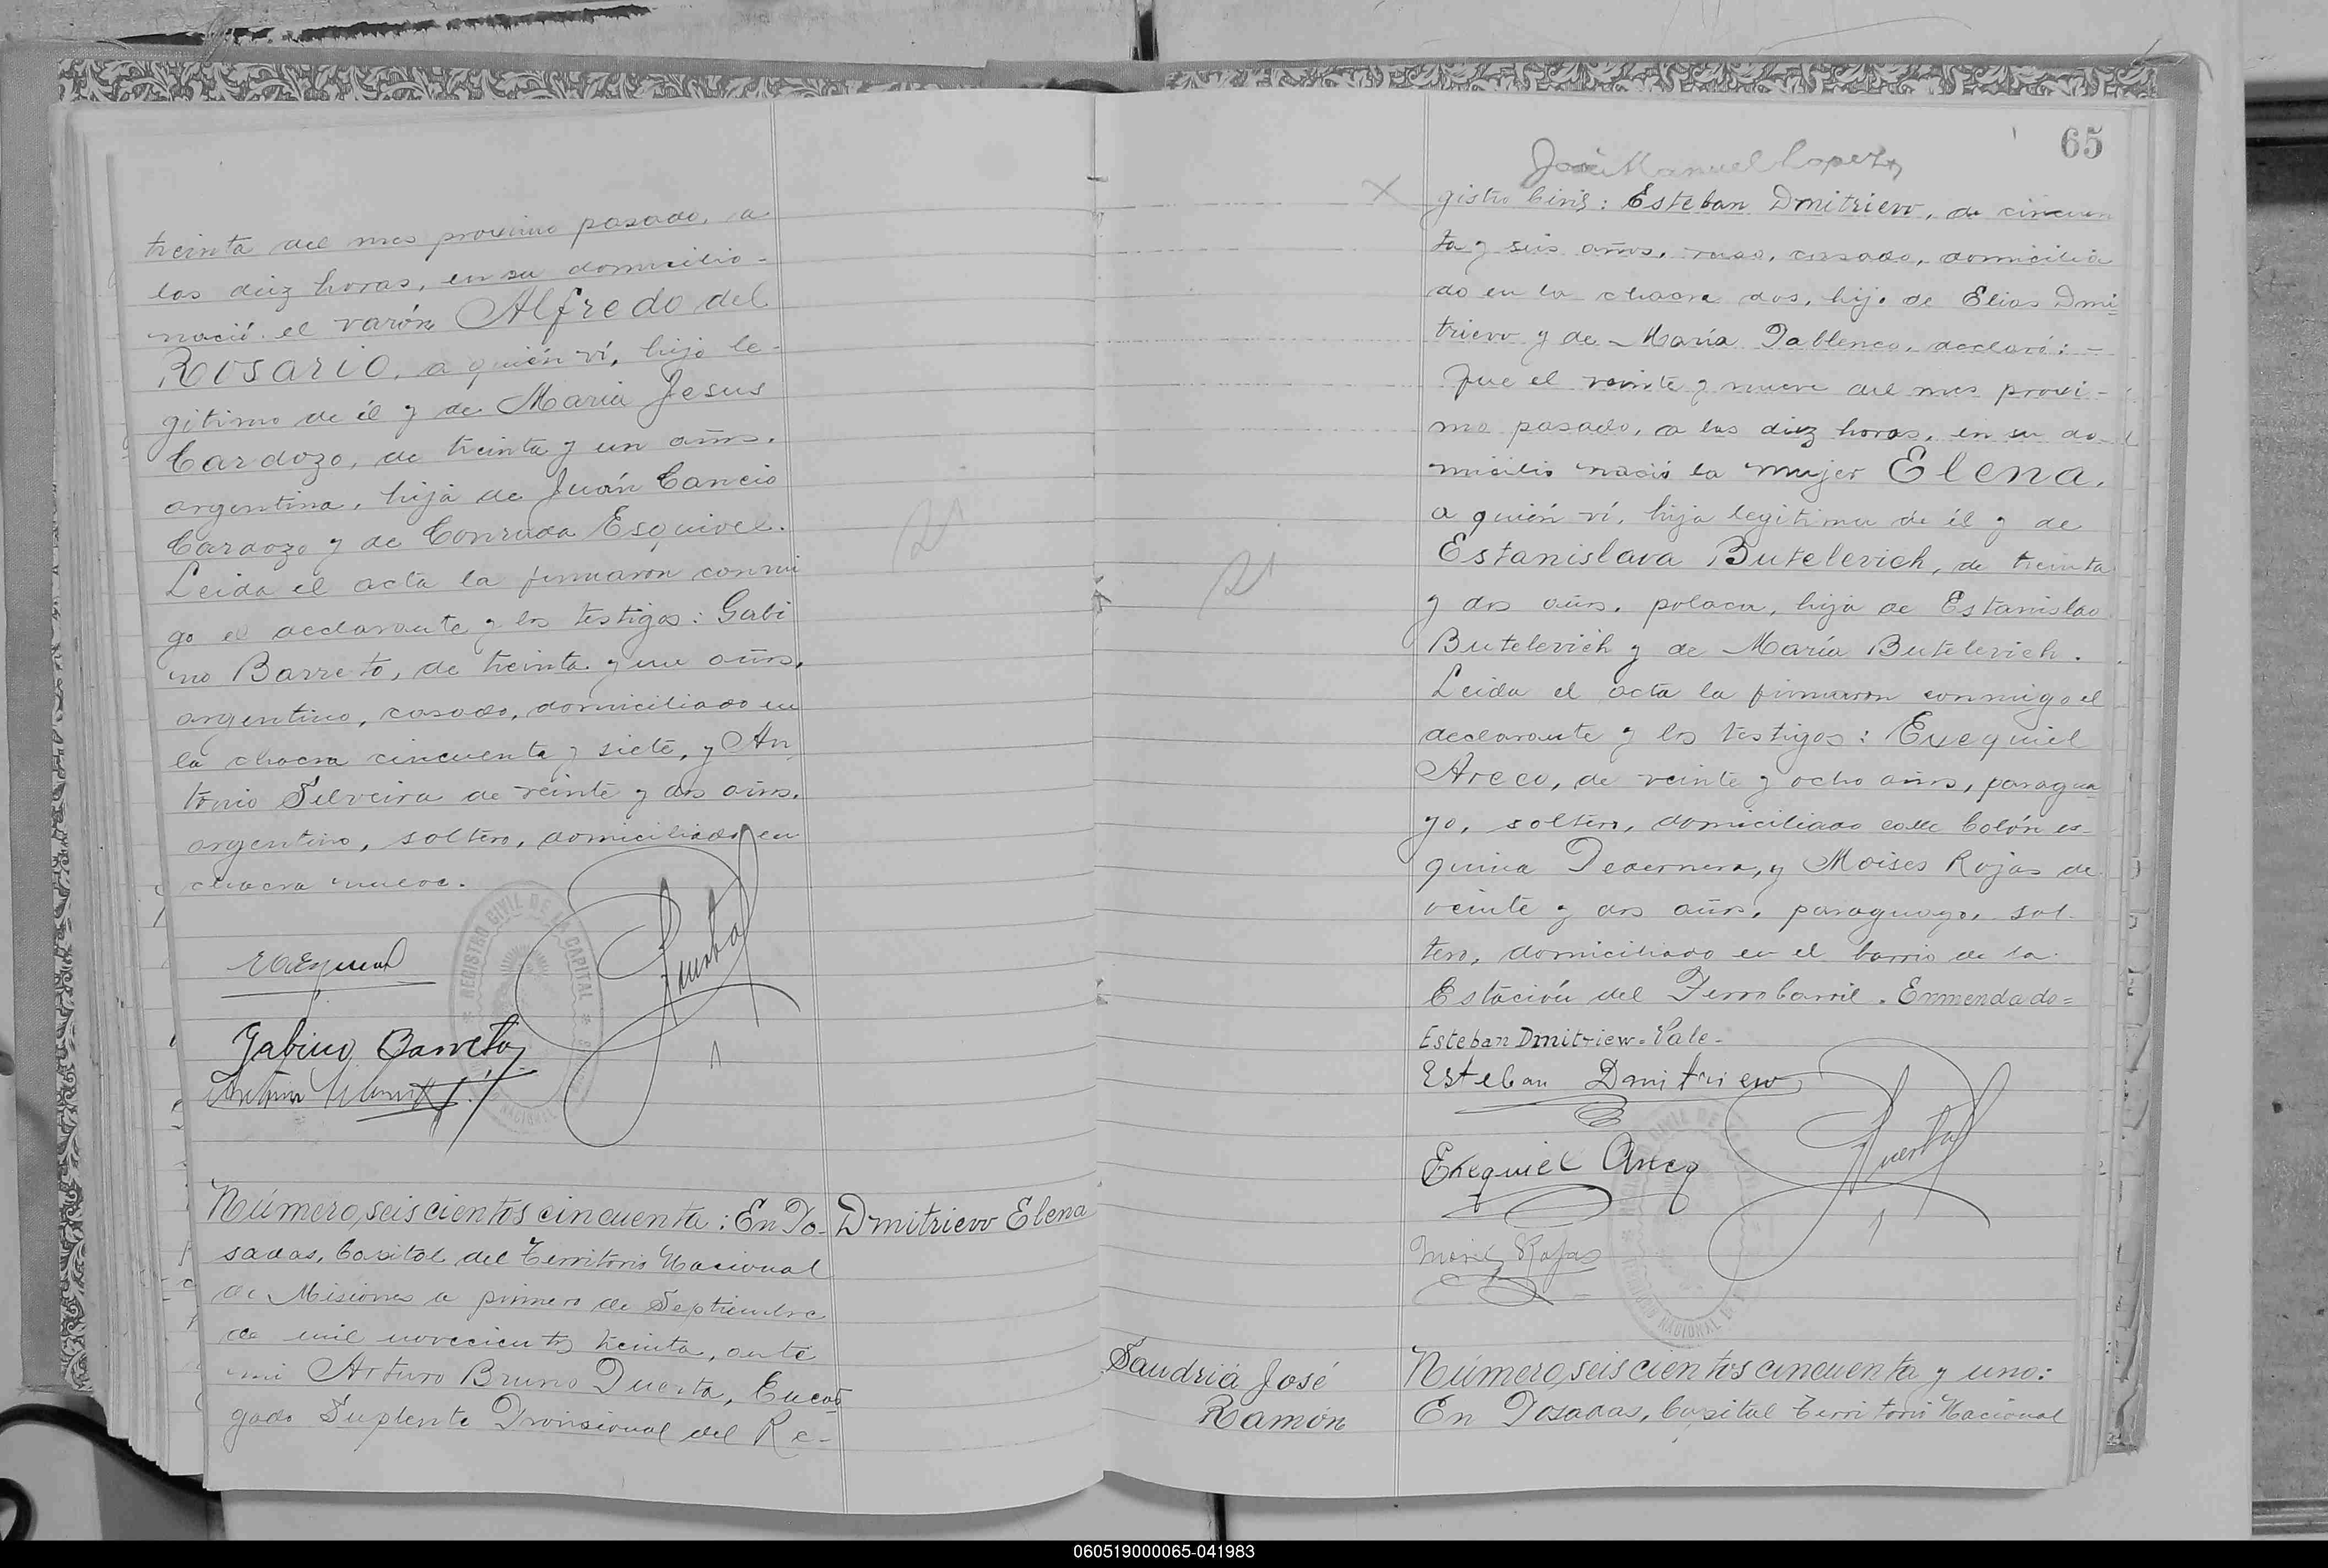 treinta del mes proximo pasado, a
las diez horas, en su domicilio -
nació el varón Alfredo del
Rosario, a quién ví, hijo le-
gitimo de él y de Maria Jesus
Cardozo, de treinta y un años,
argentina, hija de Juán Cancio
Cardozo y de Conrada Esquivel.
Leida el acta la firmaron conmi
go el declarante y los testigos: Gabi
no Barreto, de treinta y un años,
argentino, casado, domiciliado en
la chacra cincuenta y siete, y An
tonio Silveira de veinte y dos años,
argentino, soltero, domiciliado en
chacra nueve.
REGISTRO CIVIL DE LA CAPITAL
Gabino Barreto
Número seiscientos cincuenta: En Po-
Dmitriew Elena
sadas, Capital del Territorio Nacional
de Misiones a primero de Septiembre
de mil novecientos treinta, ante
mi Arturo Bruno Puerta, Encar
gado Suplente Provisional del Re-
65
José Manuel Lopez
gistro Civil: Esteban Dmitriew, de cincuen
ta y seis años, ruso, casado, domicilia
do en la chacra dos, hijo de Elias Dmi=
triew y de María Pablenco, declaró: -
Que el veinte y nueve del mes proxi-
mo pasado, a las diez horas, en su do-
micilio nació la mujer Elena,
a quién ví, hija legitima de él y de
Estanislava Butelevich, de treinta
y dos años, polaca, hija de Estanislao
Butelevich y de María Butelevich.
Leida el acta la firmaron conmigo el
declarante y los testigos: Exequiel
Areco, de veinte y ocho años, paragua
yo, soltero, domiciliado calle Colón es-
quina Pedernera, y Moises Rojas de
veinte y dos años, paraguayo, sol-
tero, domiciliado en el barrio de la
Estación del Ferrocarril. Enmendado=
Esteban Dmitriew=Vale-
Esteban Dmitriew
Exequiel Areco
Moises Rojas
Saudriá José
Ramón
Número seiscientos cincuenta y uno:
En Posadas, Capital Territorio Nacional
060519000065-041983